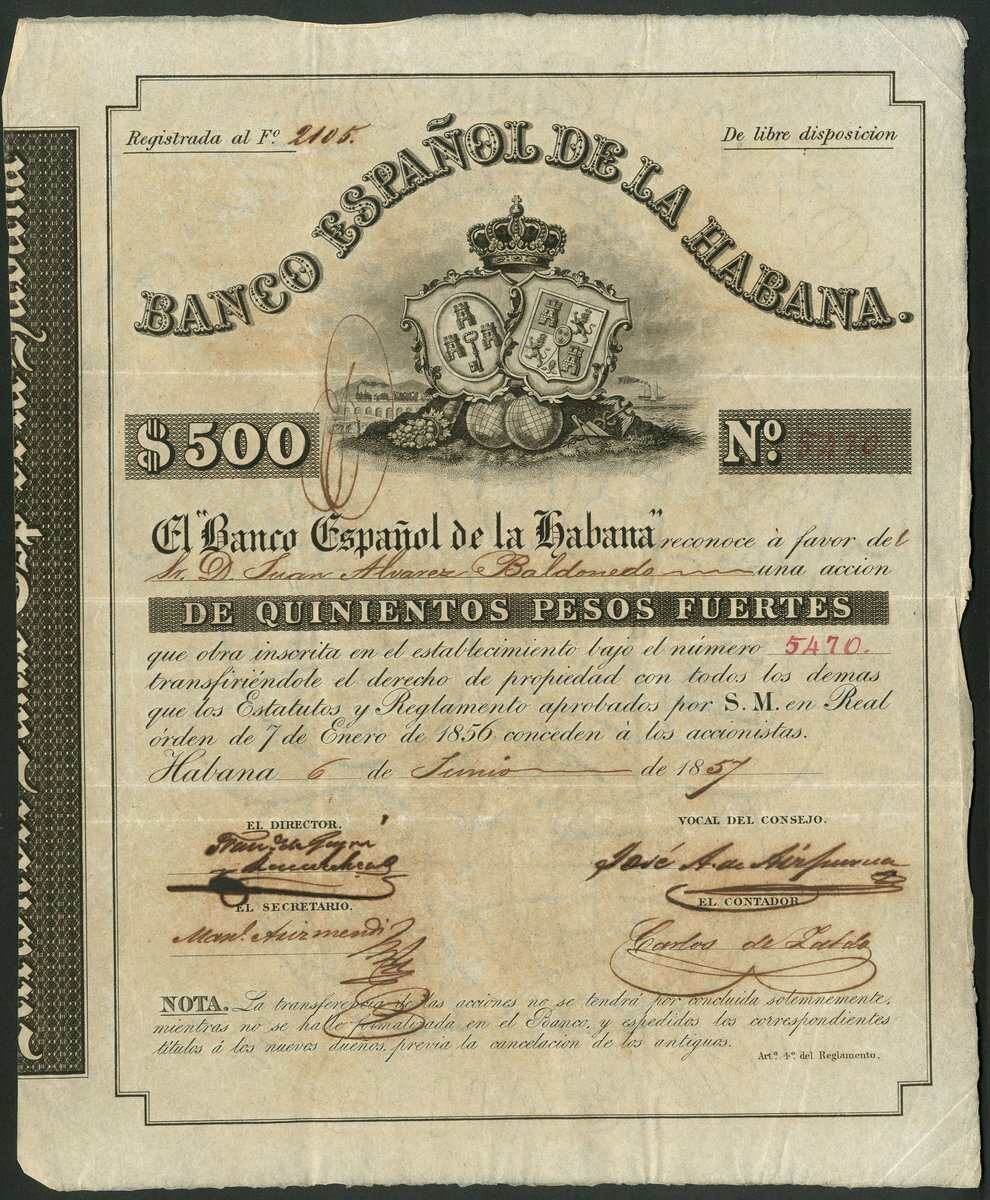 Registrada al Fº. 2105.
De libre disposicion
BANCO ESPAÑOL DE LA HABANA.
$500
Nº. 5470
El "Banco Español de la Habana" reconoce à favor del
Sr. D. Juan Alvarez Baldonedo una accion
DE QUINIENTOS PESOS FUERTES
que obra inscrita en el establecimiento bajo el número 5470.
transfiriéndole el derecho de propiedad con todos los demas
que los Estatutos y Reglamento aprobados por S. M. en Real
órden de 7 de Enero de 1856 conceden à los accionistas.
Habana 6 de Junio de 1857
EL DIRECTOR.
VOCAL DEL CONSEJO.
José A. de
EL SECRETARIO.
EL CONTADOR
Manl. Arizmendi
Carlos de Zaldo
NOTA. La transferencia de las acciones no se tendrá por concluida solemnemente,
mientras no se halle formalizada en el Banco, y espedidos los correspondientes
títulos á los nuevos dueños, previa la cancelacion de los antiguos.
Artº. 4º. del Reglamento.